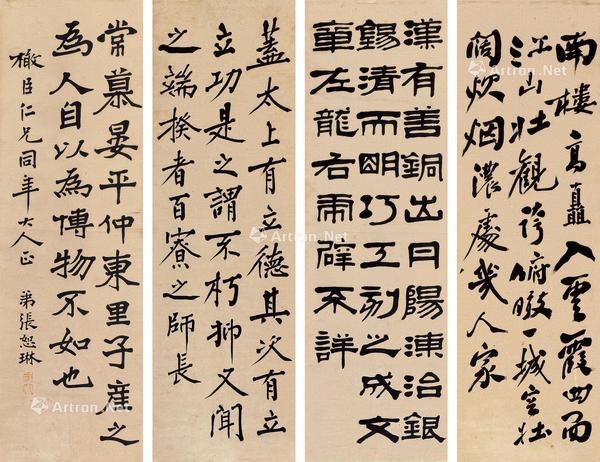 南樓高矗入雲霞四面
江山壯觀誇俯瞰一城空壯
闊炊烟濃處幾人家
漢有善銅出丹陽湅治銀
錫清而明巧工刻之成文
章左龍右虎辟不詳
蓋太上有立德其次有立
立功是之謂不朽抑又聞
之端揆者百寮之師長
常慕晏平仲東里子產之
為人自以為博物不如也
臣仁兄同年大人正 弟張恕琳
Artron.Net
Artron.Net
Artron.Net
Artron.Net
Artron.Net